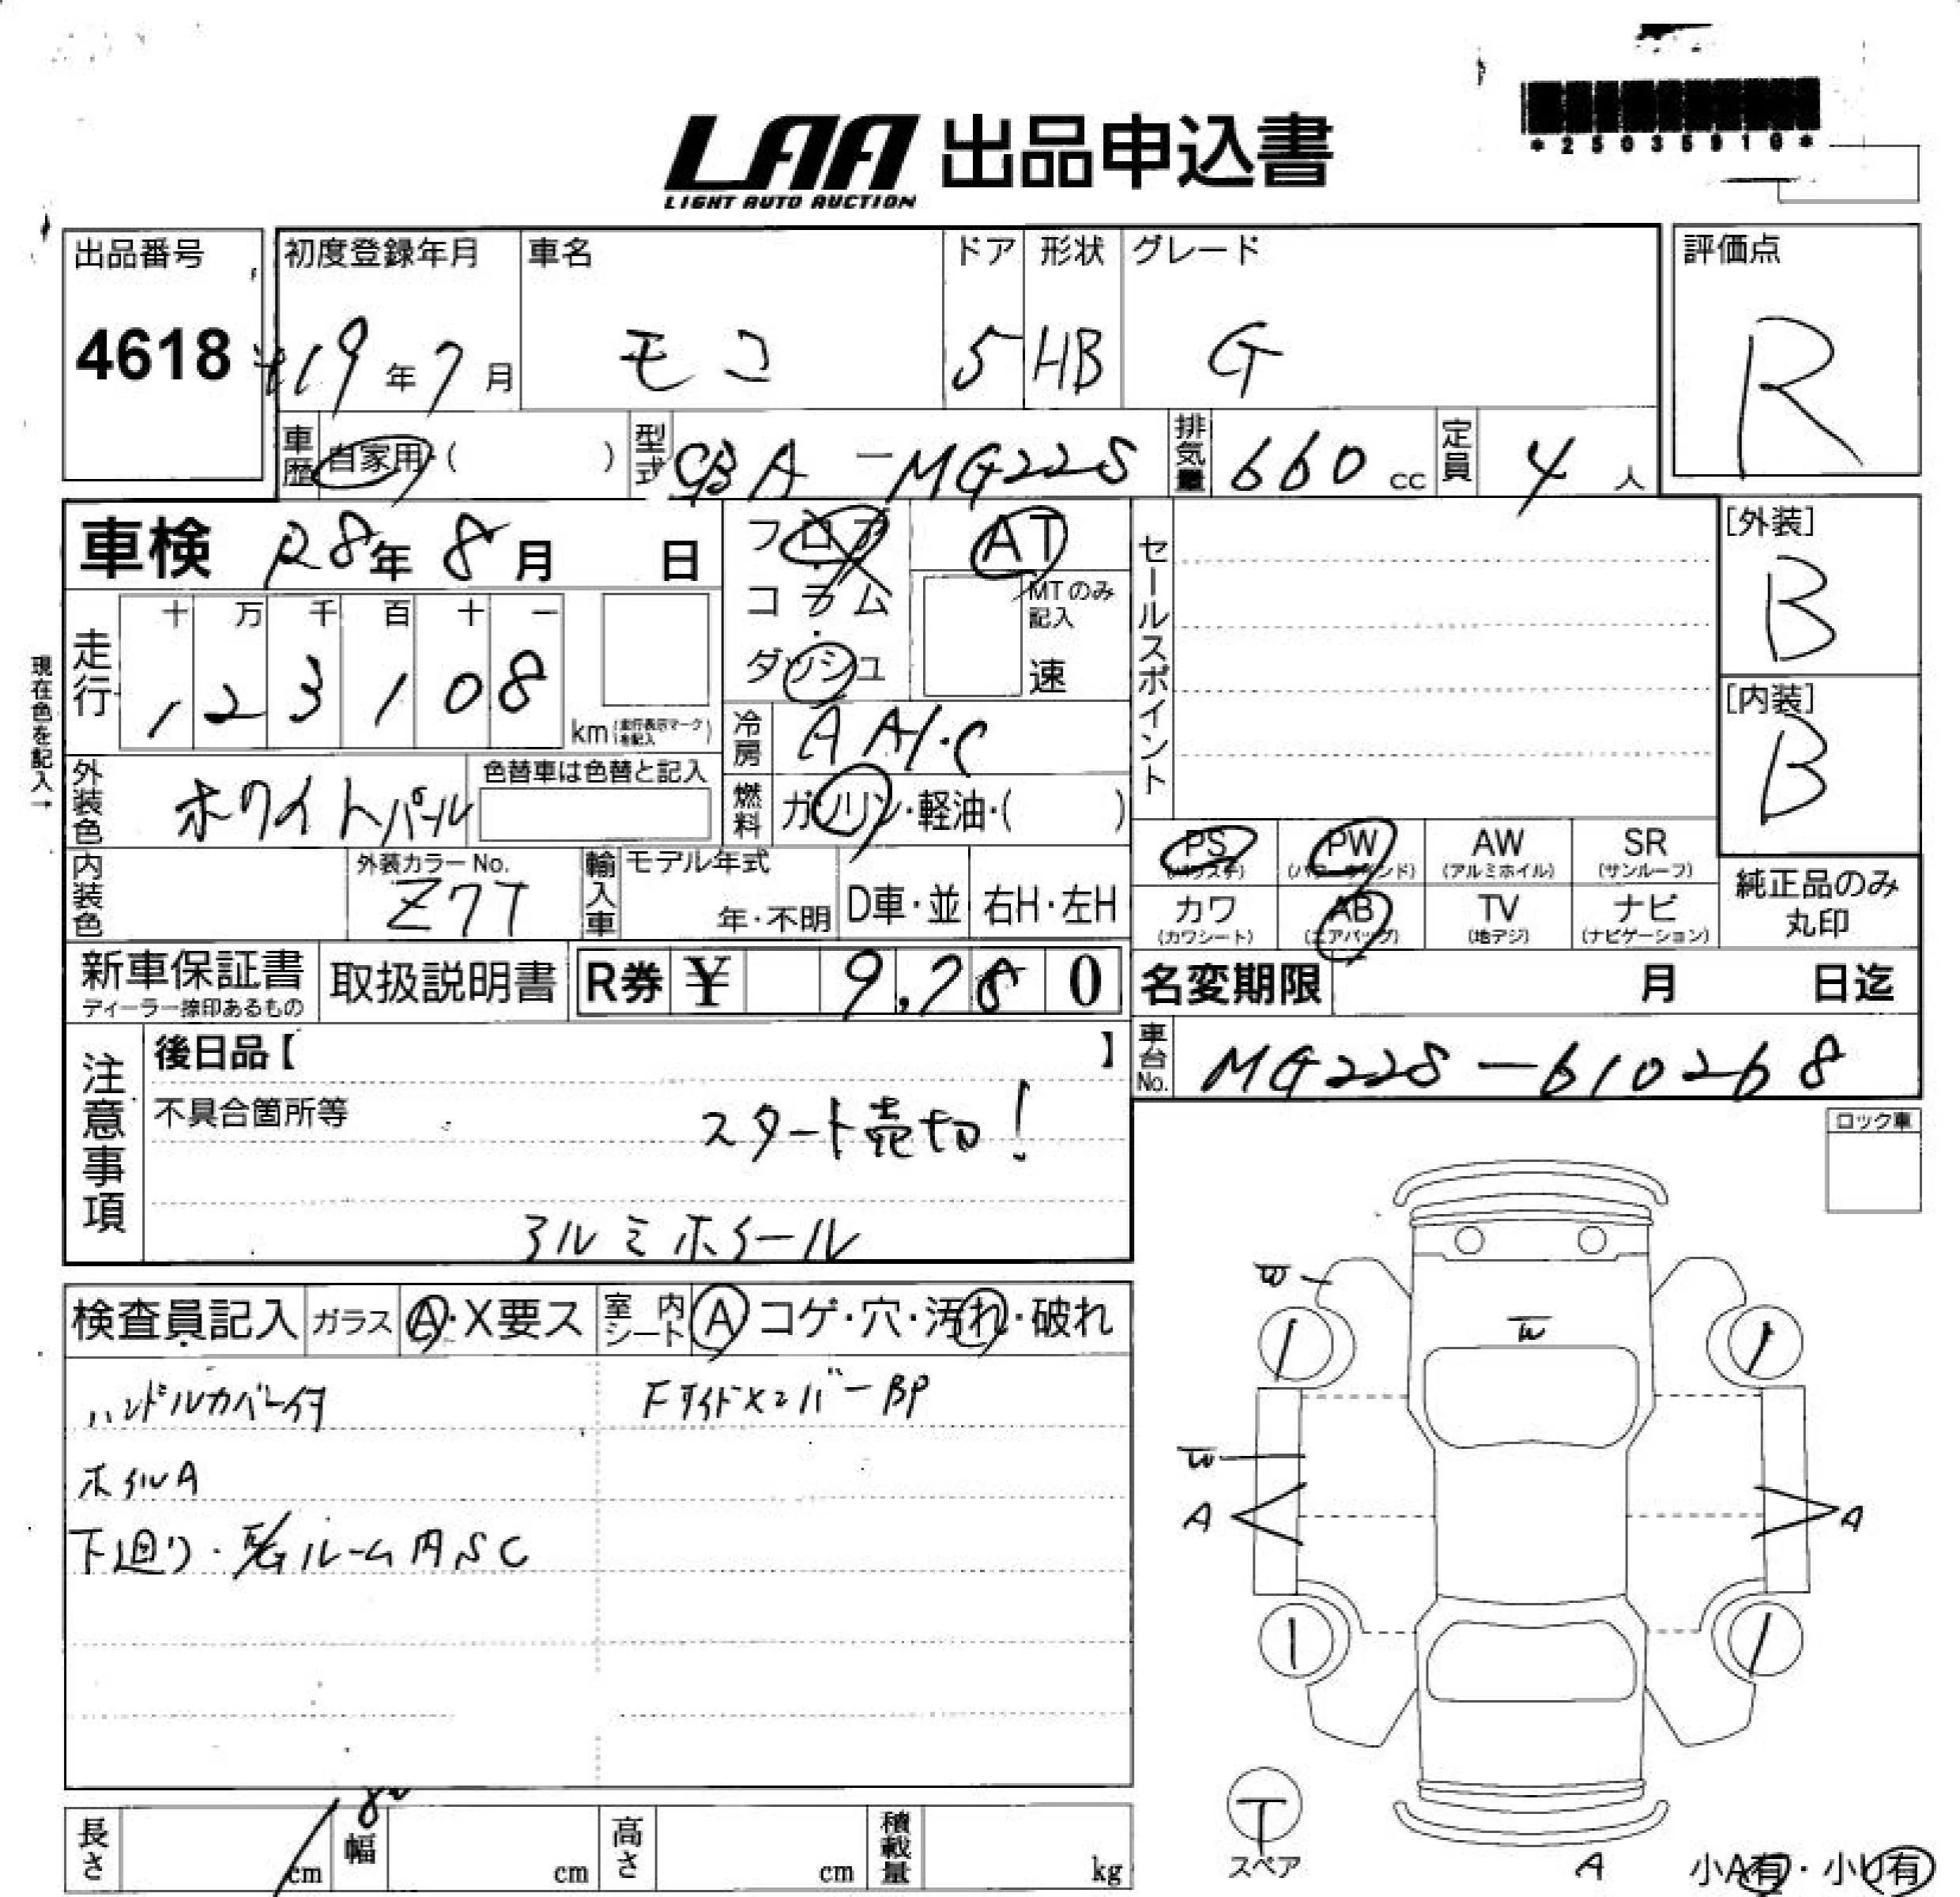 LAA 出品申込書
LIGHT AUTO AUCTION
*25035910*
出品番号
4618
初度登録年月
19年7月
車名
モコ
ドア
5
形状
HB
グレード
G
評価点
R
車歴 自家用・( )
型式 CBA-MG22S
排気量 660 cc
定員 4 人
車検 28年8月 日
フロア
コラム
ダッシュ
AT
MTのみ記入
速
セールスポイント
[外装]
B
[内装]
B
現在色を記入→
走行
十 万 千 百 十 一
1 2 3 1 0 8
km(走行表示マークを記入)
冷房 AAC
燃料 ガソリン・軽油・( )
外装色 ホワイトパール
色替車は色替と記入
内装色
外装カラーNo.
Z7T
輸入車
モデル年式
年・不明
D車・並
右H・左H
PS (パワステ)
PW (パワーウインド)
AW (アルミホイル)
SR (サンルーフ)
カワ (カワシート)
AB (エアバッグ)
TV (地デジ)
ナビ (ナビゲーション)
純正品のみ丸印
新車保証書
ディーラー捺印あるもの
取扱説明書
R券 ¥ 9,780
名変期限 月 日迄
車台No. MG22S-610268
注意事項
後日品【 】
不具合箇所等
スタート売切!
アルミホイール
ロック車
検査員記入
ガラス A・X要ス
室内シート A コゲ・穴・汚れ・破れ
ハンドルカバー付
FサイドメンバーBP
ホイルA
下廻り・
ルーム内SC
W
W
W
A
A
T
スペア
A
小A有・小U有
長さ cm
幅 cm
高さ cm
積載量 kg